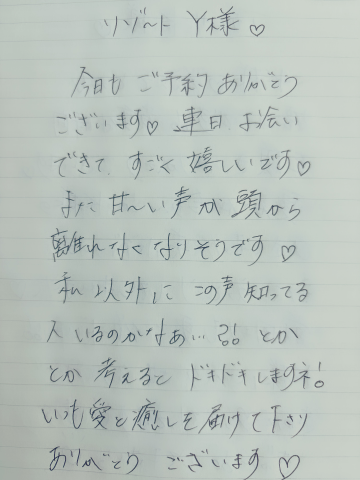 リゾート Y様♡
今日も ご予約 ありがとう
ございます♡ 連日 お会い
できて、すごく嬉しいです♡
また 甘〜い声が 頭から
離れなくなりそうです♡
私以外に この声 知ってる
人いるのかなぁ…?! とか
とか 考えると ドキドキしますネ!
いつも愛と癒しを届けて下さり
ありがとう ございます♡